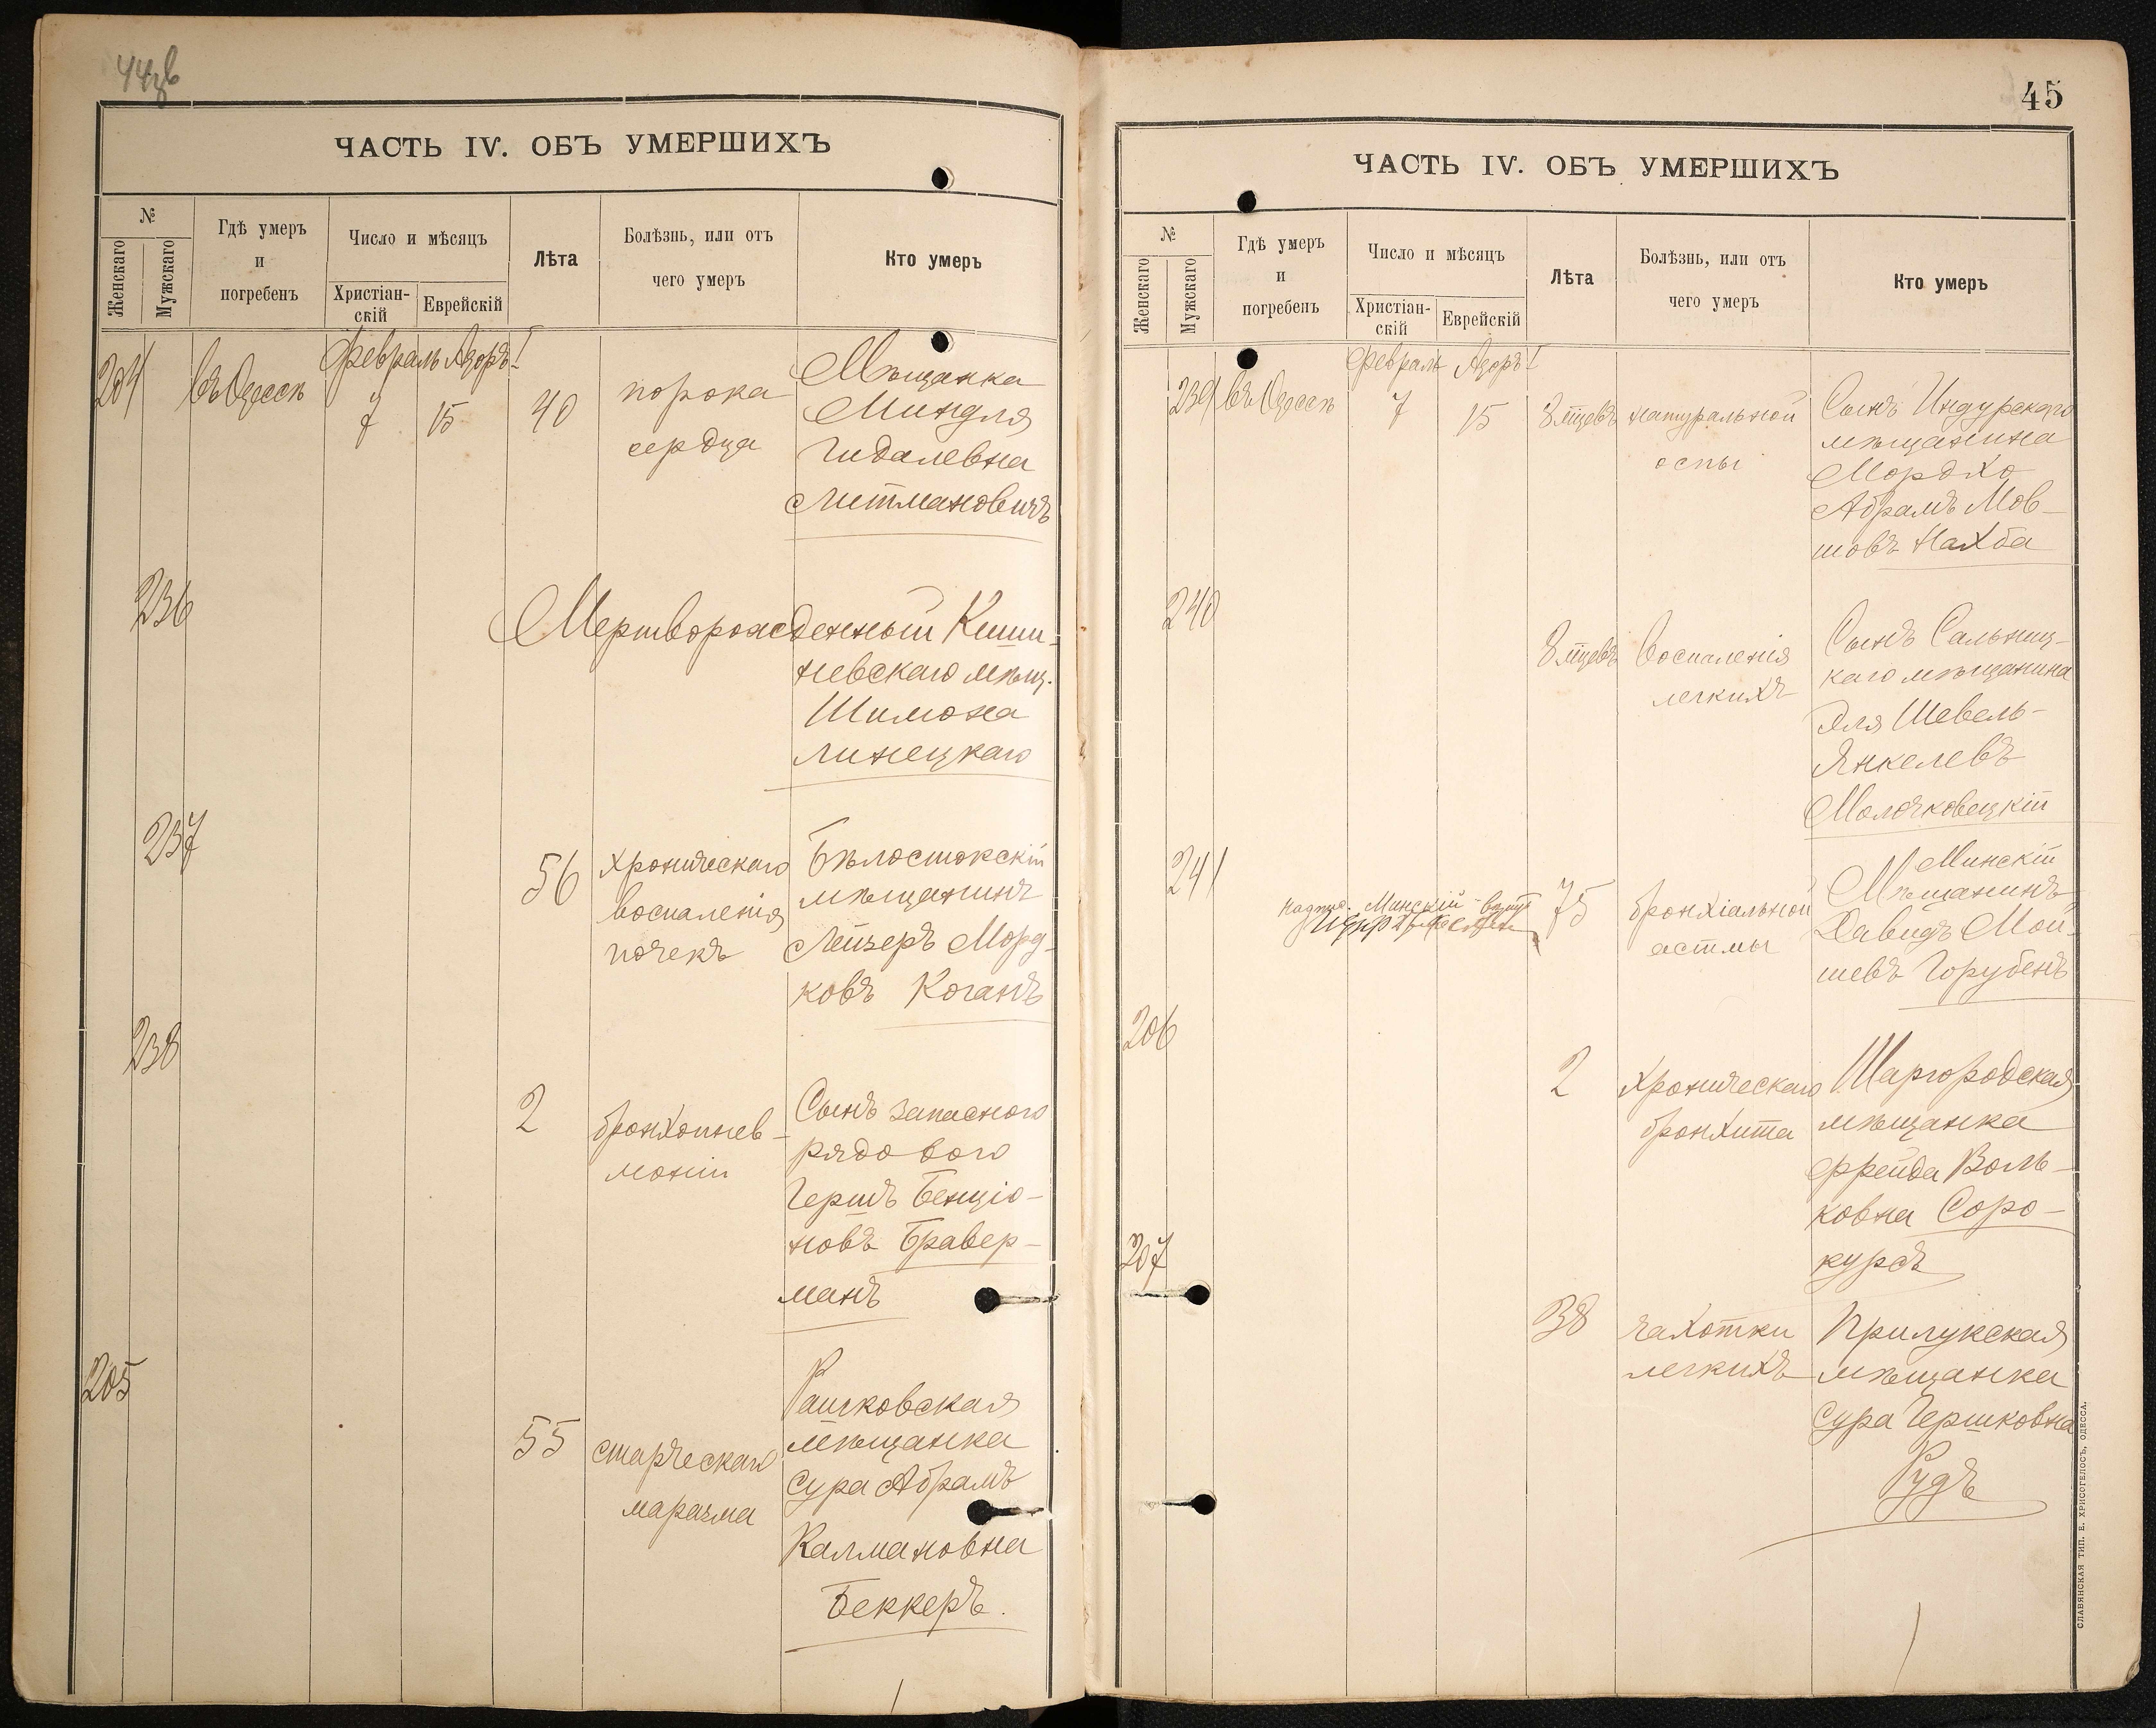 44об
ЧАСТЬ IV. ОБЪ УМЕРШИХЪ
№
Женскаго
Мужскаго
Гдѣ умеръ
и
погребенъ
Число и мѣсяцъ
Христіан-
скій
Еврейскій
Лѣта
Болѣзнь, или отъ
чего умеръ
Кто умеръ
Февраль Адоръ I
204 въ Одессѣ 7 15 40
порока
сердца
Мѣщанка
Миндля
Гидалевна
Литмановичъ
236
Мертворожденный Киши-
невскаго мѣщ.
Шимона
Линецкаго
237
56
хроническаго
воспаленія
почекъ
Бѣлостокскій
мѣщанинъ
Лейзеръ Морд-
ковъ Коганъ
238
2
бронхопнев-
моніи
Сынъ запасного
рядового
Гершъ Бенціо-
новъ Бравер-
манъ
205
55
старческаго
маразма
Рашковская
мѣщанка
Сура Абрамъ
Калмановна
Беккеръ.
45
ЧАСТЬ IV. ОБЪ УМЕРШИХЪ
№
Женскаго
Мужскаго
Гдѣ умеръ
и
погребенъ
Число и мѣсяцъ
Христіан-
скій
Еврейскій
Лѣта
Болѣзнь, или отъ
чего умеръ
Кто умеръ
Февраль Адоръ I
239 въ Одессѣ 7 15 8 мцевъ
натуральной
оспы
Сынъ Индурскаго
мѣщанина
Мордхо
Абрамъ Мов-
шовъ Нахба
240
8 мцевъ
воспаленія
легкихъ
Сынъ Сальниц-
каго мѣщанина
Эля Шевель-
Янкелевъ
Молочковецкій
241
надпис. Минскій
75
бронхіальной
астмы
Минскій
Мѣщанинъ
Давидъ Мой-
шевъ Горубенъ
206
2
хроническаго
бронхита
Шаргородская
мѣщанка
Фрейда Воль-
ковна Соро-
куръ
207
38
чахотки
легкихъ
Прилукская
мѣщанка
Сура Гершковна
Рудъ
СЛАВЯНСКАЯ ТИП. Е. ХРИСОГЕЛОСЪ, ОДЕССА.